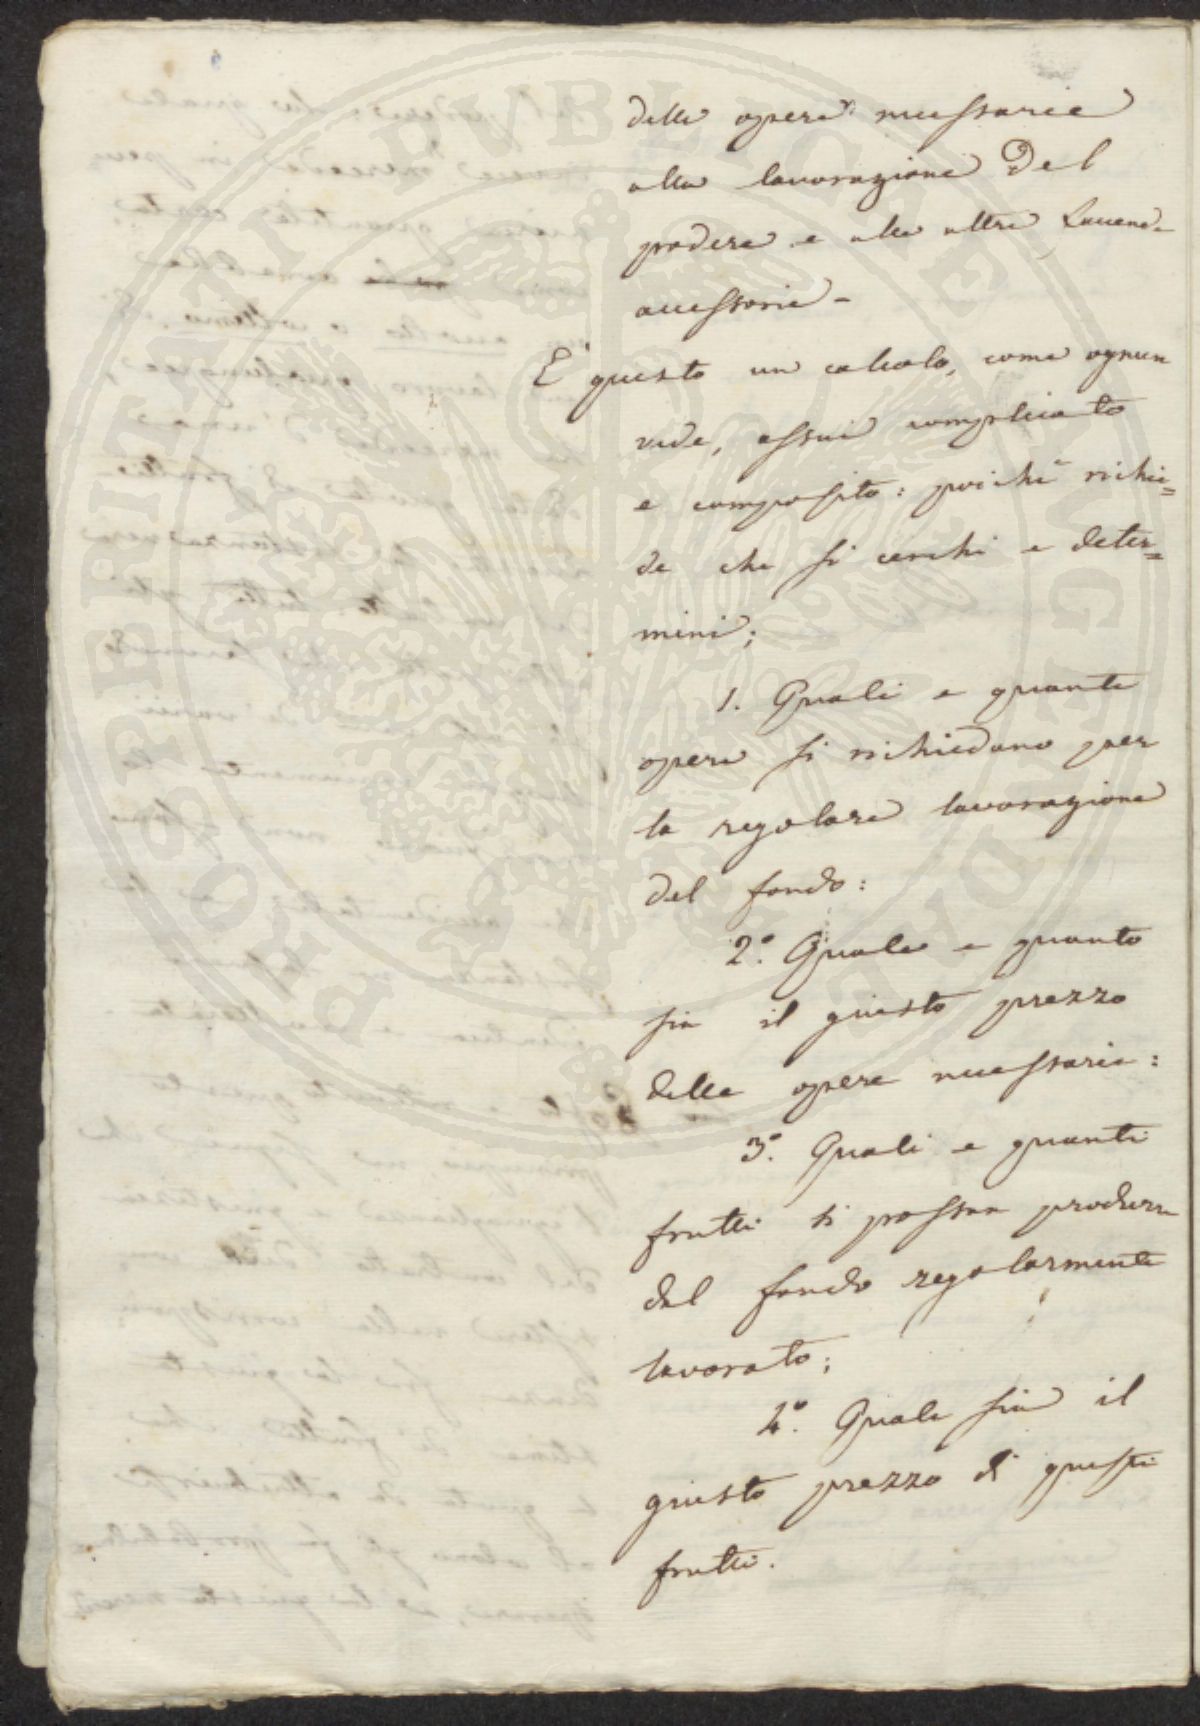 delle opere necessarie
alla lavorazione del
podere e alle altre faccende
accessorie -
È questo un calcolo, come ognun
vede, assai complicato
e composito: poichè richie=
de che si cerchi e deter=
mini;
1. Quali e quante
opere si richiedano per
la regolare lavorazione
del fondo:
2.º Quale e quanto
sia il giusto prezzo
delle opere necessarie:
3.º Quali e quanti
frutti si possan produrre
dal fondo regolarmente
lavorato;
4.º Quale sia il
giusto prezzo di questi
frutti.
PROSPERITATI PVBLICAE AVGENDAE